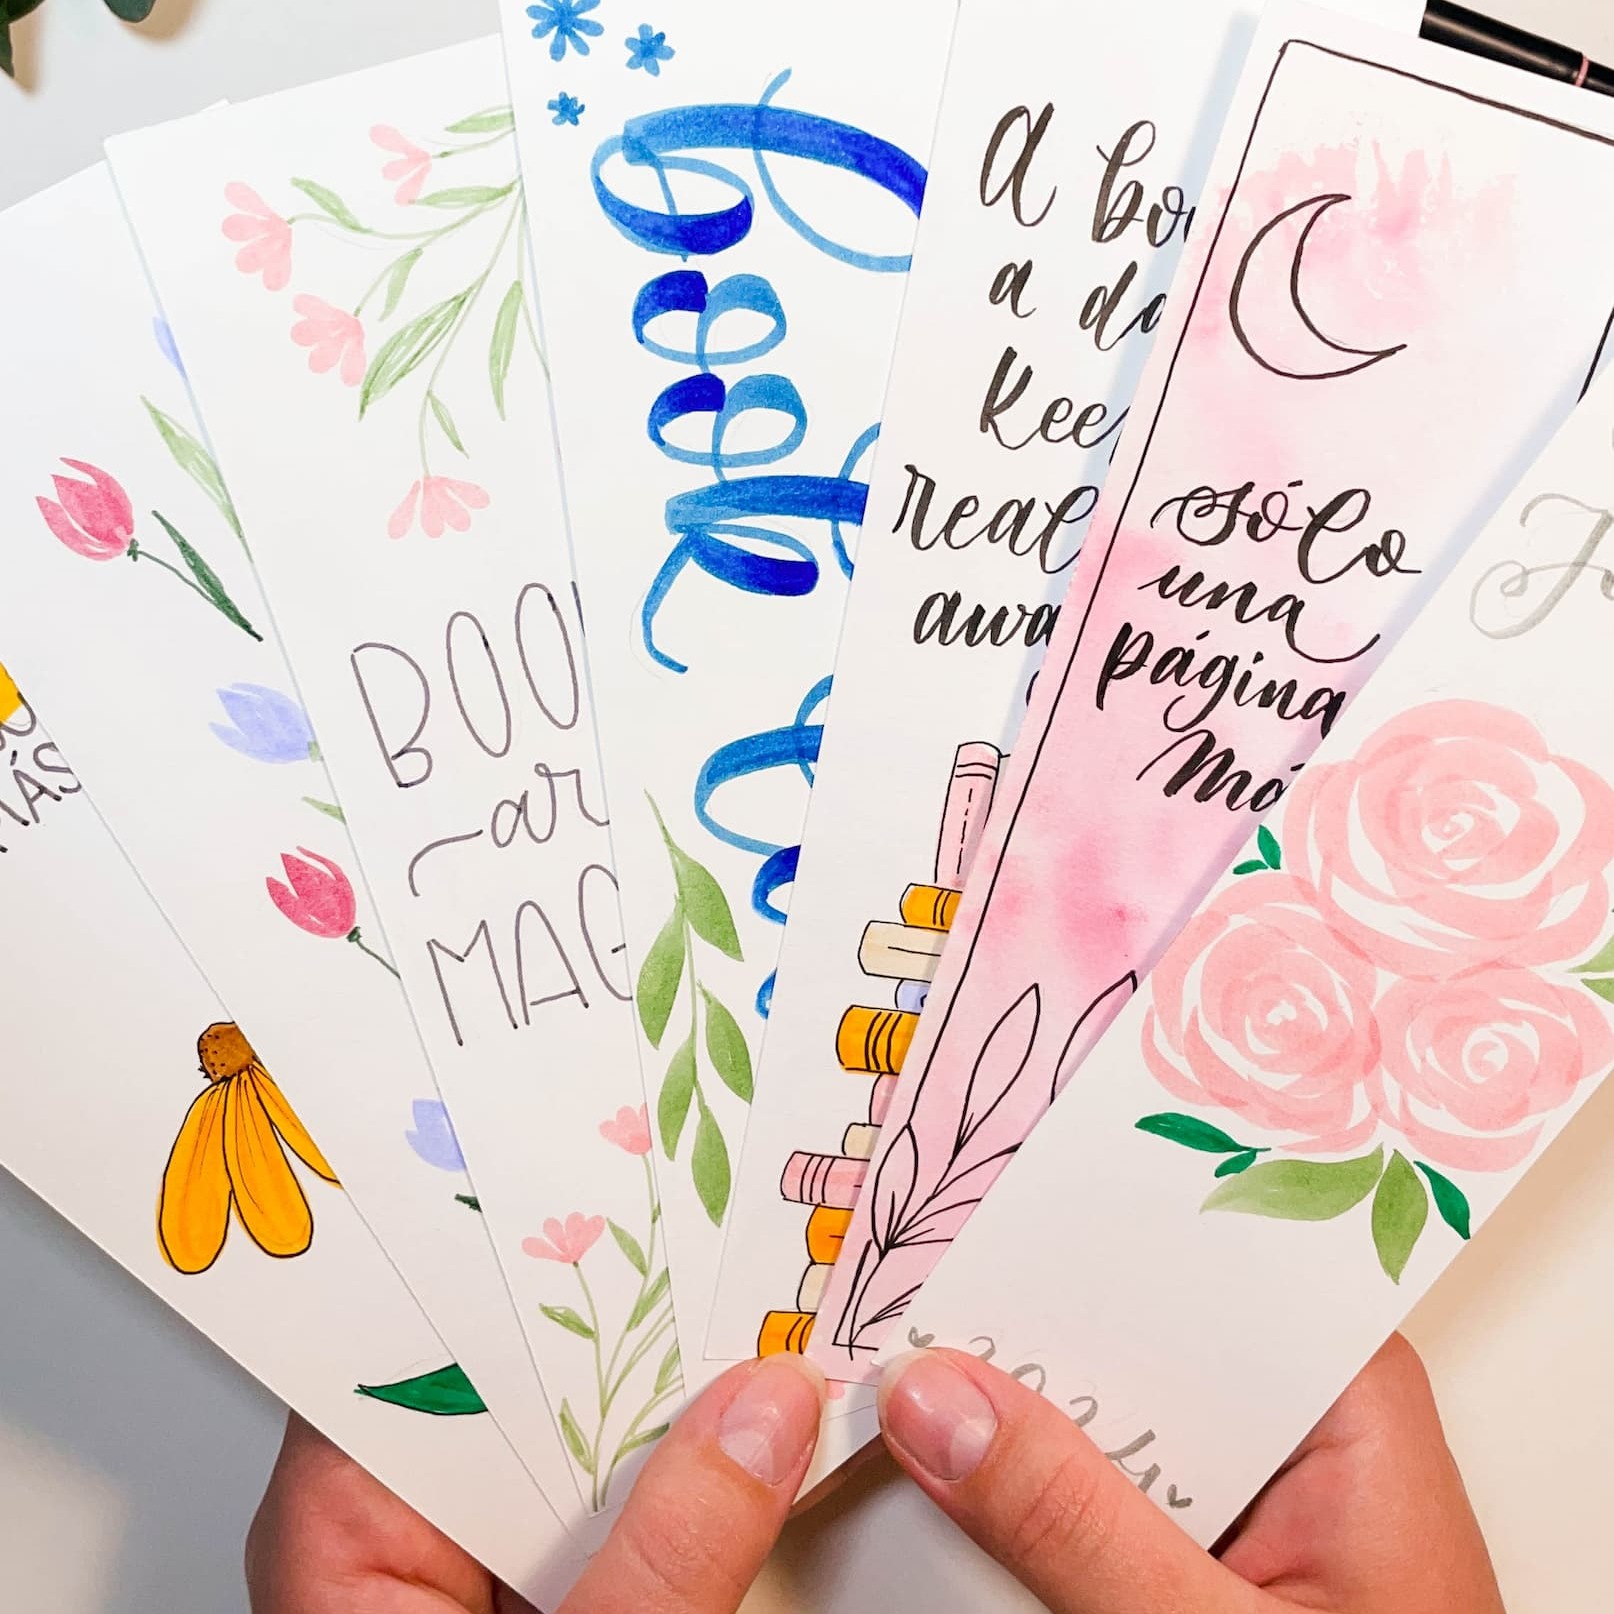 MÁS
BOO
ar
MAG
book
A bo
a da
keep
real
awa
sólo
una
página
Má
2024